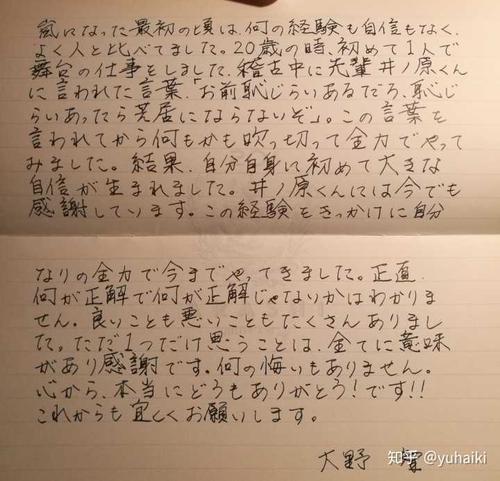 嵐になった最初の頃は、何の経験も自信もなく、
よく人と比べてました。20歳の時、初めて1人で
舞台の仕事をしました。稽古中に先輩井ノ原くん
に言われた言葉、「お前恥じらいあるだろ、恥じ
らいあったら芝居にならないぞ」。この言葉を
言われてから何もかも吹っ切って全力でやって
みました。結果、自分自身に初めて大きな
自信が生まれました。井ノ原くんには今でも
感謝しています。この経験をきっかけに自分
なりの全力で今までやってきました。正直、
何が正解で何が正解じゃないかはわかりま
せん。良いことも悪いこともたくさんありまし
た。ただ1つだけ思うことは、全てに意味
があり感謝です。何の悔いもありません。
心から、本当にどうもありがとう!です!!
これからも宜しくお願いします。
大野 智
知乎 @yuhaiki